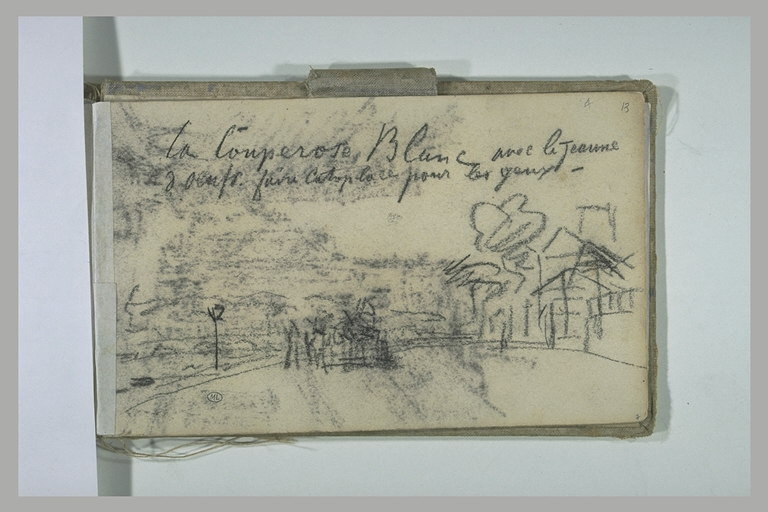 La Couperose Blanc avec le jeaune
d oeufs. faire Cataplace pour les yeux -
13
ML